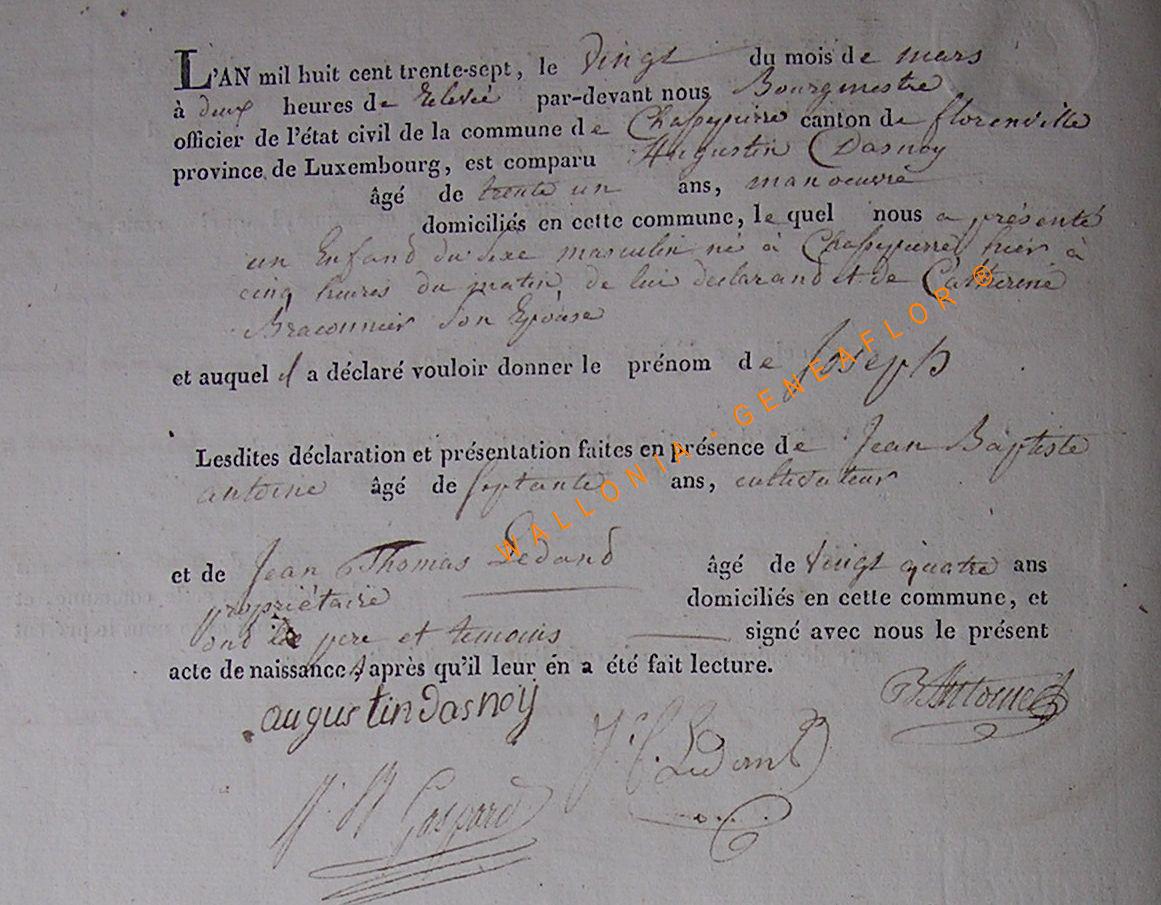 L'AN mil huit cent trente-sept, le vingt du mois de mars
à deux heures de relevée par-devant nous Bourgmestre
officier de l'état civil de la commune de Chassepierre canton de florenville
province de Luxembourg, est comparu Augustin Dasnoy
âgé de trente un ans, manoeuvre
domiciliés en cette commune, le quel nous a présenté
un Enfand du sexe masculin né à Chassepierre hier à
cinq heures du matin de lui déclarand et de Catherine
Braconnier son Epouse
et auquel il a déclaré vouloir donner le prénom de Joseph
Lesdites déclaration et présentation faites en présence de Jean Baptiste
antoine âgé de septante ans, cultivateur
et de Jean Thomas Ledand âgé de vingt quatre ans
propriétaire domiciliés en cette commune, et
ont les pere et temoins signé avec nous le présent
acte de naissance, après qu'il leur en a été fait lecture.
augustin dasnoy
B Antoine
Ledant
Gaspard
WALLONIA - GENEAFLOR ®